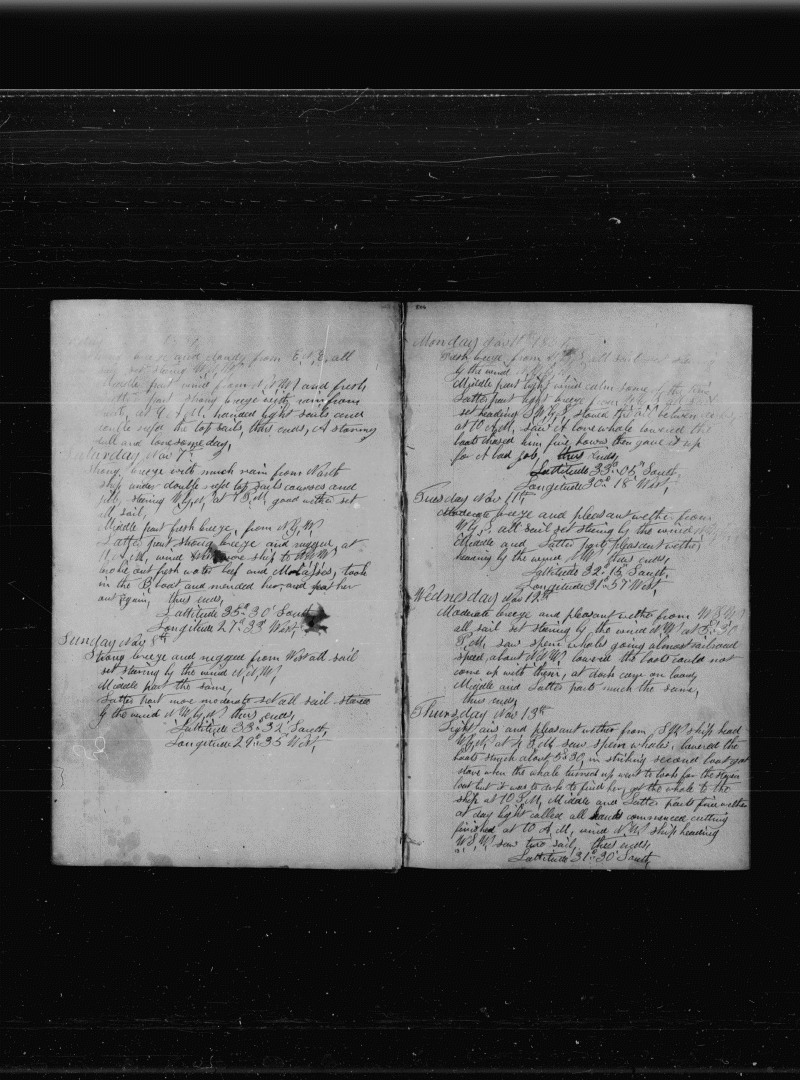 breeze and cloudy from E,N,E, all
sail set
Middle part wind from N,N,W, and fresh
Latter part strong breeze with rain from
at 6 A.M. handed light sails and
double reefd the top sails, thus ends, A starving
dull and lonesome day,
Saturday Nov 7th
Strong breeze with much rain from North
ship under double reefd top sails courses and
steering W,by,N, at 7 P.M. good wether set
M, sail,
Middle part fresh breeze, from N,by,W,
Latter part strong breeze and rugged, at
A.M. wind ship to
broke out fresh water beef and Molasses, took
in the B boat and mended her, and put her
out again, thus ends,
Lattitude 35° 30' South
Longitude 27° 33' West,
Sunday Nov 8th
Strong breeze and rugged from West all sail
set stearing by the wind N,N,W,
Middle part the same,
Latter part more moderate set all sail
by the wind N,W,by,N, thus ends,
Lattitude 33° 32' South,
Longitude 29° 35' West,
Monday Nov
breeze from all sail
by the wind
Middle part light wind calm some of the time
Latter part light breeze from
set heading S,W,by,S
at 10 A.M. saw A lone whale lowered the
boats chased him five hours then gave it up
for A bad job, thus ends,
Lattitude 33° 05' South,
Longitude 30° 18' West,
Tuesday Nov 11th
Moderate breeze and pleasant wether from
W,by,S, all sail set stearing by the wind
Middle and Latter part pleasant wether
heading by the wind thus ends,
Lattitude 32° 15' South,
Longitude 31° 57' West,
Wednesday Nov 12th
Moderate breeze and pleasant wether from
all sail set stearing by the wind N,W, at 5:30
P.M. saw sperm whales going almost railroad
speed, about lowerd the boats could not
come up with them, at dark came on board
Middle and Latter parts much the same,
thus ends,
Thursday Nov 13th
Light airs and pleasant wether from S,W, ship head
at 4 P.M. saw sperm whales, lowered the
boats struck about 5:30, in striking second boat got
stove when the whale turned up went to look for the stoven
boat but it was to dark to find her, got the whale to the
ship at 10 P.M. Middle and Latter parts fine wether
at day light called all hands commenced cutting
finished at 10 A.M. wind N,W, ship heading
W,S,W, saw two sail, thus ends,
Lattitude 31° 30' South